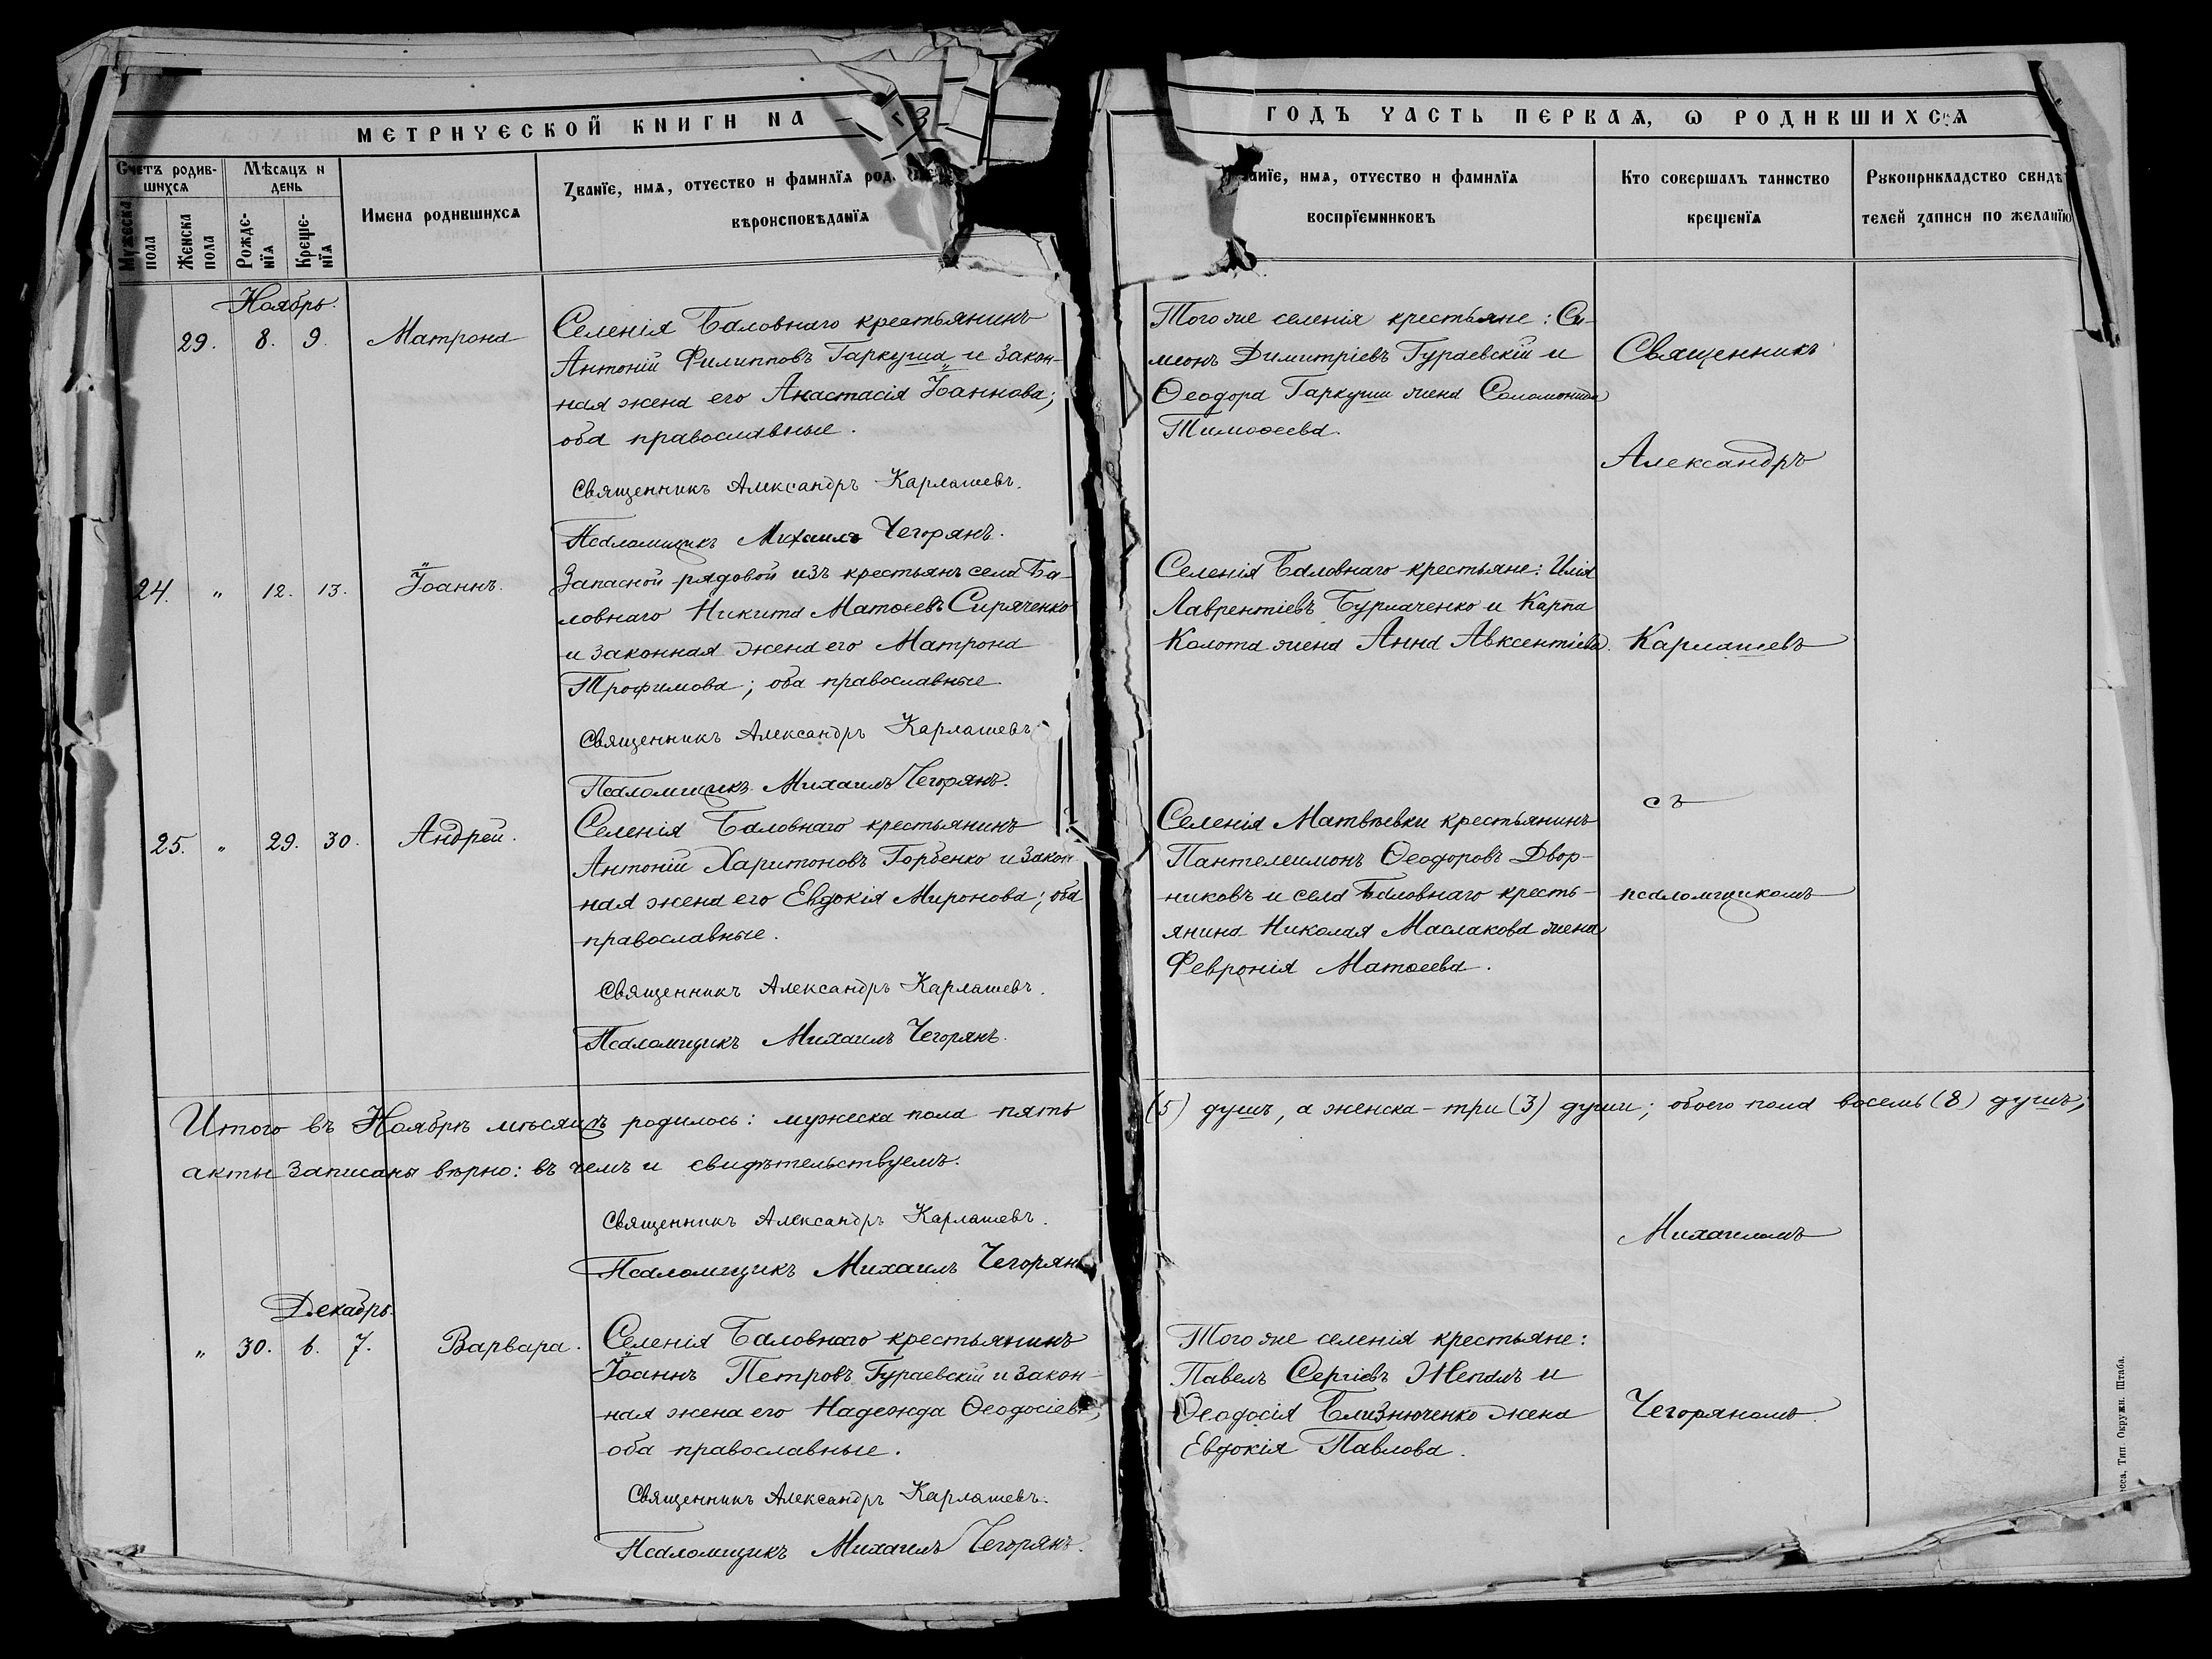 МЕТРИЧЕСКОЙ КНИГИ НА
Счетъ родив-
шихся
Мѣсяцъ и
день
Мужеска
пола
Женска
пола
Рожде-
нїя
Креще-
нїя
Имена родившихся
Званїе, имя, отчество и фамилїя род
вѣроисповѣданїя
Ноябрь.
29. 8. 9. Матрона
Селенія Баловнаго крестьянинъ
Антоній Филипповъ Гаркуша и закон-
ная жена его Анастасія Іоаннова;
оба православные.
Священникъ Александръ Карлашевъ.
Псаломщикъ Михаилъ Чегорянъ.
24. " 12. 13. Іоаннъ.
Запасной рядовой изъ крестьянъ села Ба-
ловнаго Никита Матѳеевъ Сиряченко
и законная жена его Матрона
Трофимова; оба православные
Священникъ Александръ Карлашевъ
Псаломщикъ Михаилъ Чегорянъ.
25. " 29. 30. Андрей.
Селенія Баловнаго крестьянинъ
Антоній Харитоновъ Горбенко и закон-
ная жена его Евдокія Миронова; оба
православные.
Священникъ Александръ Карлашевъ.
Псаломщикъ Михаилъ Чегорянъ.
Итого въ Ноябрѣ мѣсяцѣ родилось: мужеска пола пять
акты записаны вѣрно: въ чемъ и свидѣтельствуемъ.
Священникъ Александръ Карлашевъ.
Псаломщикъ Михаилъ Чегорянъ
Декабрь.
" 30. 6. 7. Варвара.
Селенія Баловнаго крестьянинъ
Іоаннъ Петровъ Гураевскій и закон-
ная жена его Надежда Ѳеодосіева,
оба православные.
Священникъ Александръ Карлашевъ.
Псаломщикъ Михаилъ Чегорянъ.
ГОДЪ ЧАСТЬ ПЕРВАЯ, Ѡ РОДИВШИХСЯ
анїе, имя, отчество и фамилїя
воспрїемниковъ
Кто совершалъ таинство
крещенїя
Рукоприкладство свидѣ
телей записи по желанїю
Того же селенія крестьяне: Си-
меонъ Димитріевъ Гураевскій и
Ѳеодора Гаркуши жена Соломонида
Тимоѳеева.
Селенія Баловнаго крестьяне: Илія
Лаврентіевъ Бурлаченко и Карпа
Колота жена Анна Авксентіева.
Селенія Матвѣевки крестьянинъ
Пантелеимонъ Ѳеодоровъ Двор-
никовъ и села Баловнаго кресть-
янина Николая Маслакова жена
Февронія Матѳеева.
(5) душъ, а женска - три (3) души; обоего пола восемь (8) душъ;
Того же селенія крестьяне:
Павелъ Сергіевъ Жепалъ и
Ѳеодосія Близнюченко жена
Евдокія Павлова.
Священникъ
Александръ
Карлашевъ
съ
псаломщикомъ
Михаиломъ
Чегоряномъ.
есса, Тип. Окружн. Штаба.